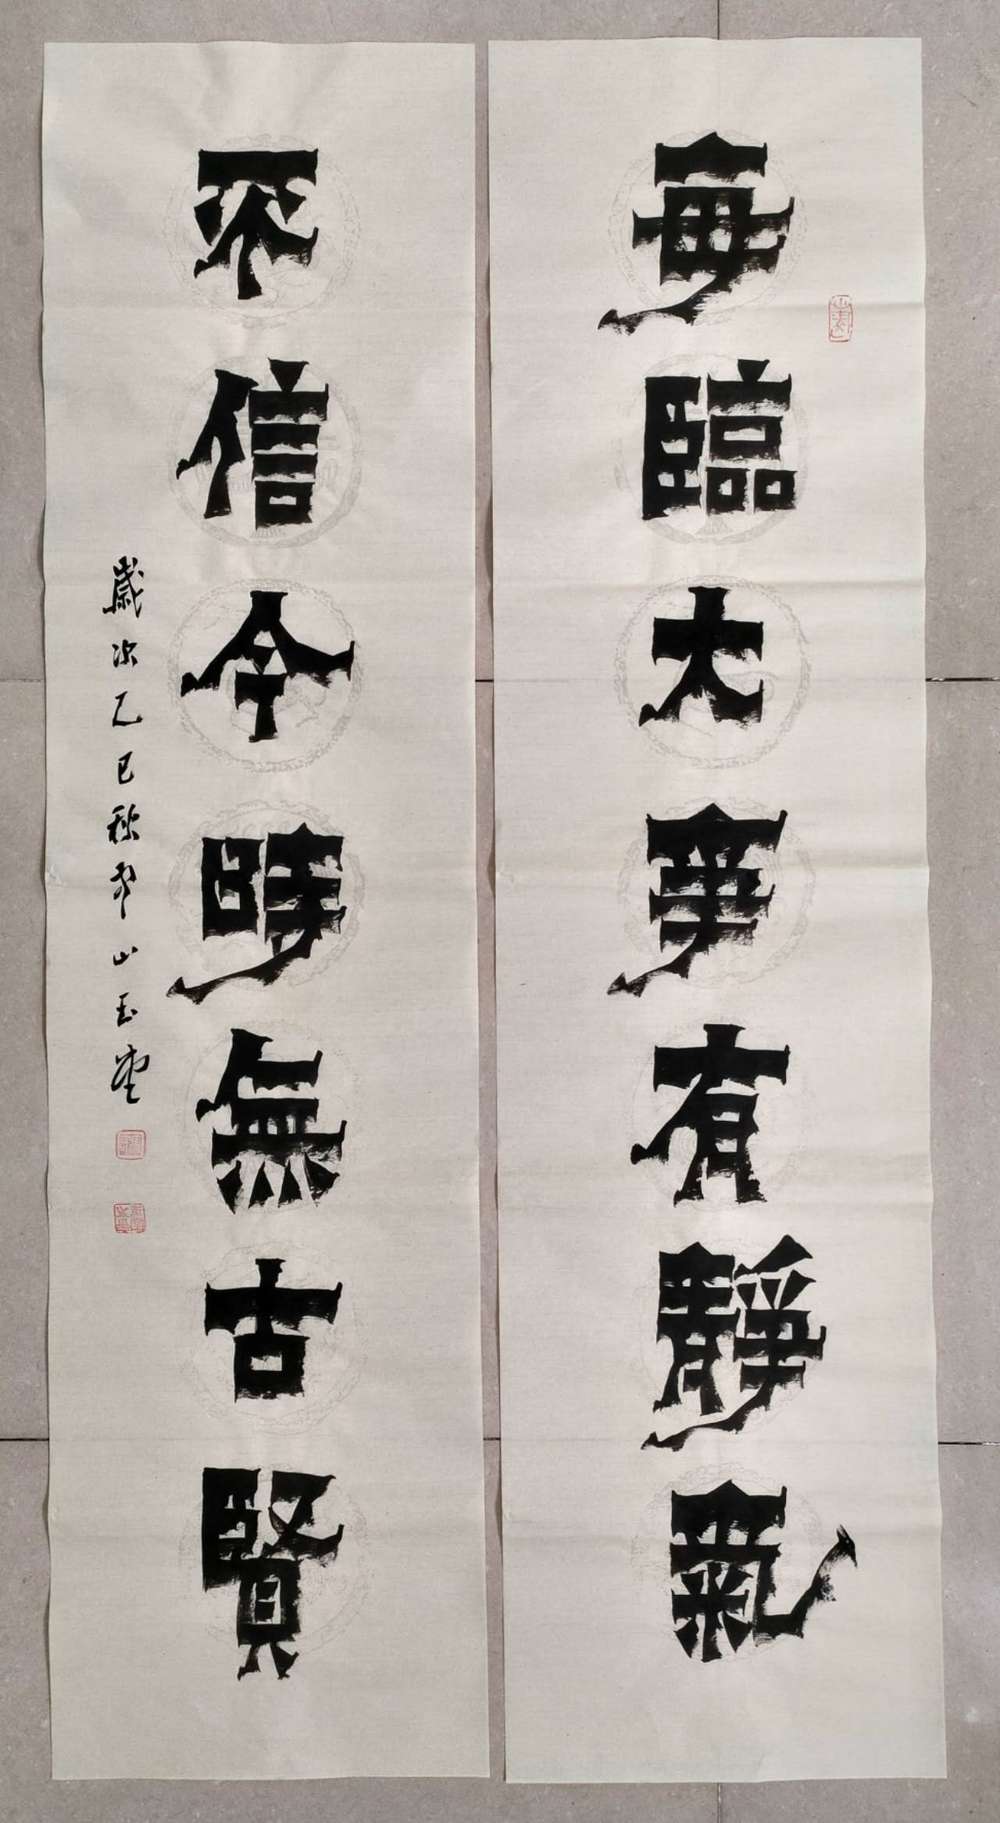 每臨大事有靜氣
不信今時無古賢
歲次乙巳秋孝山玉堂